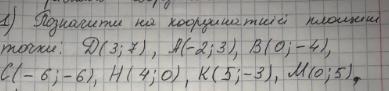 1) Позначити на координатній площині
точки: D(3;7), A(-2;3), B(0;-4),
C(-6;-6), H(4;0), K(5;-3), M(0;5),